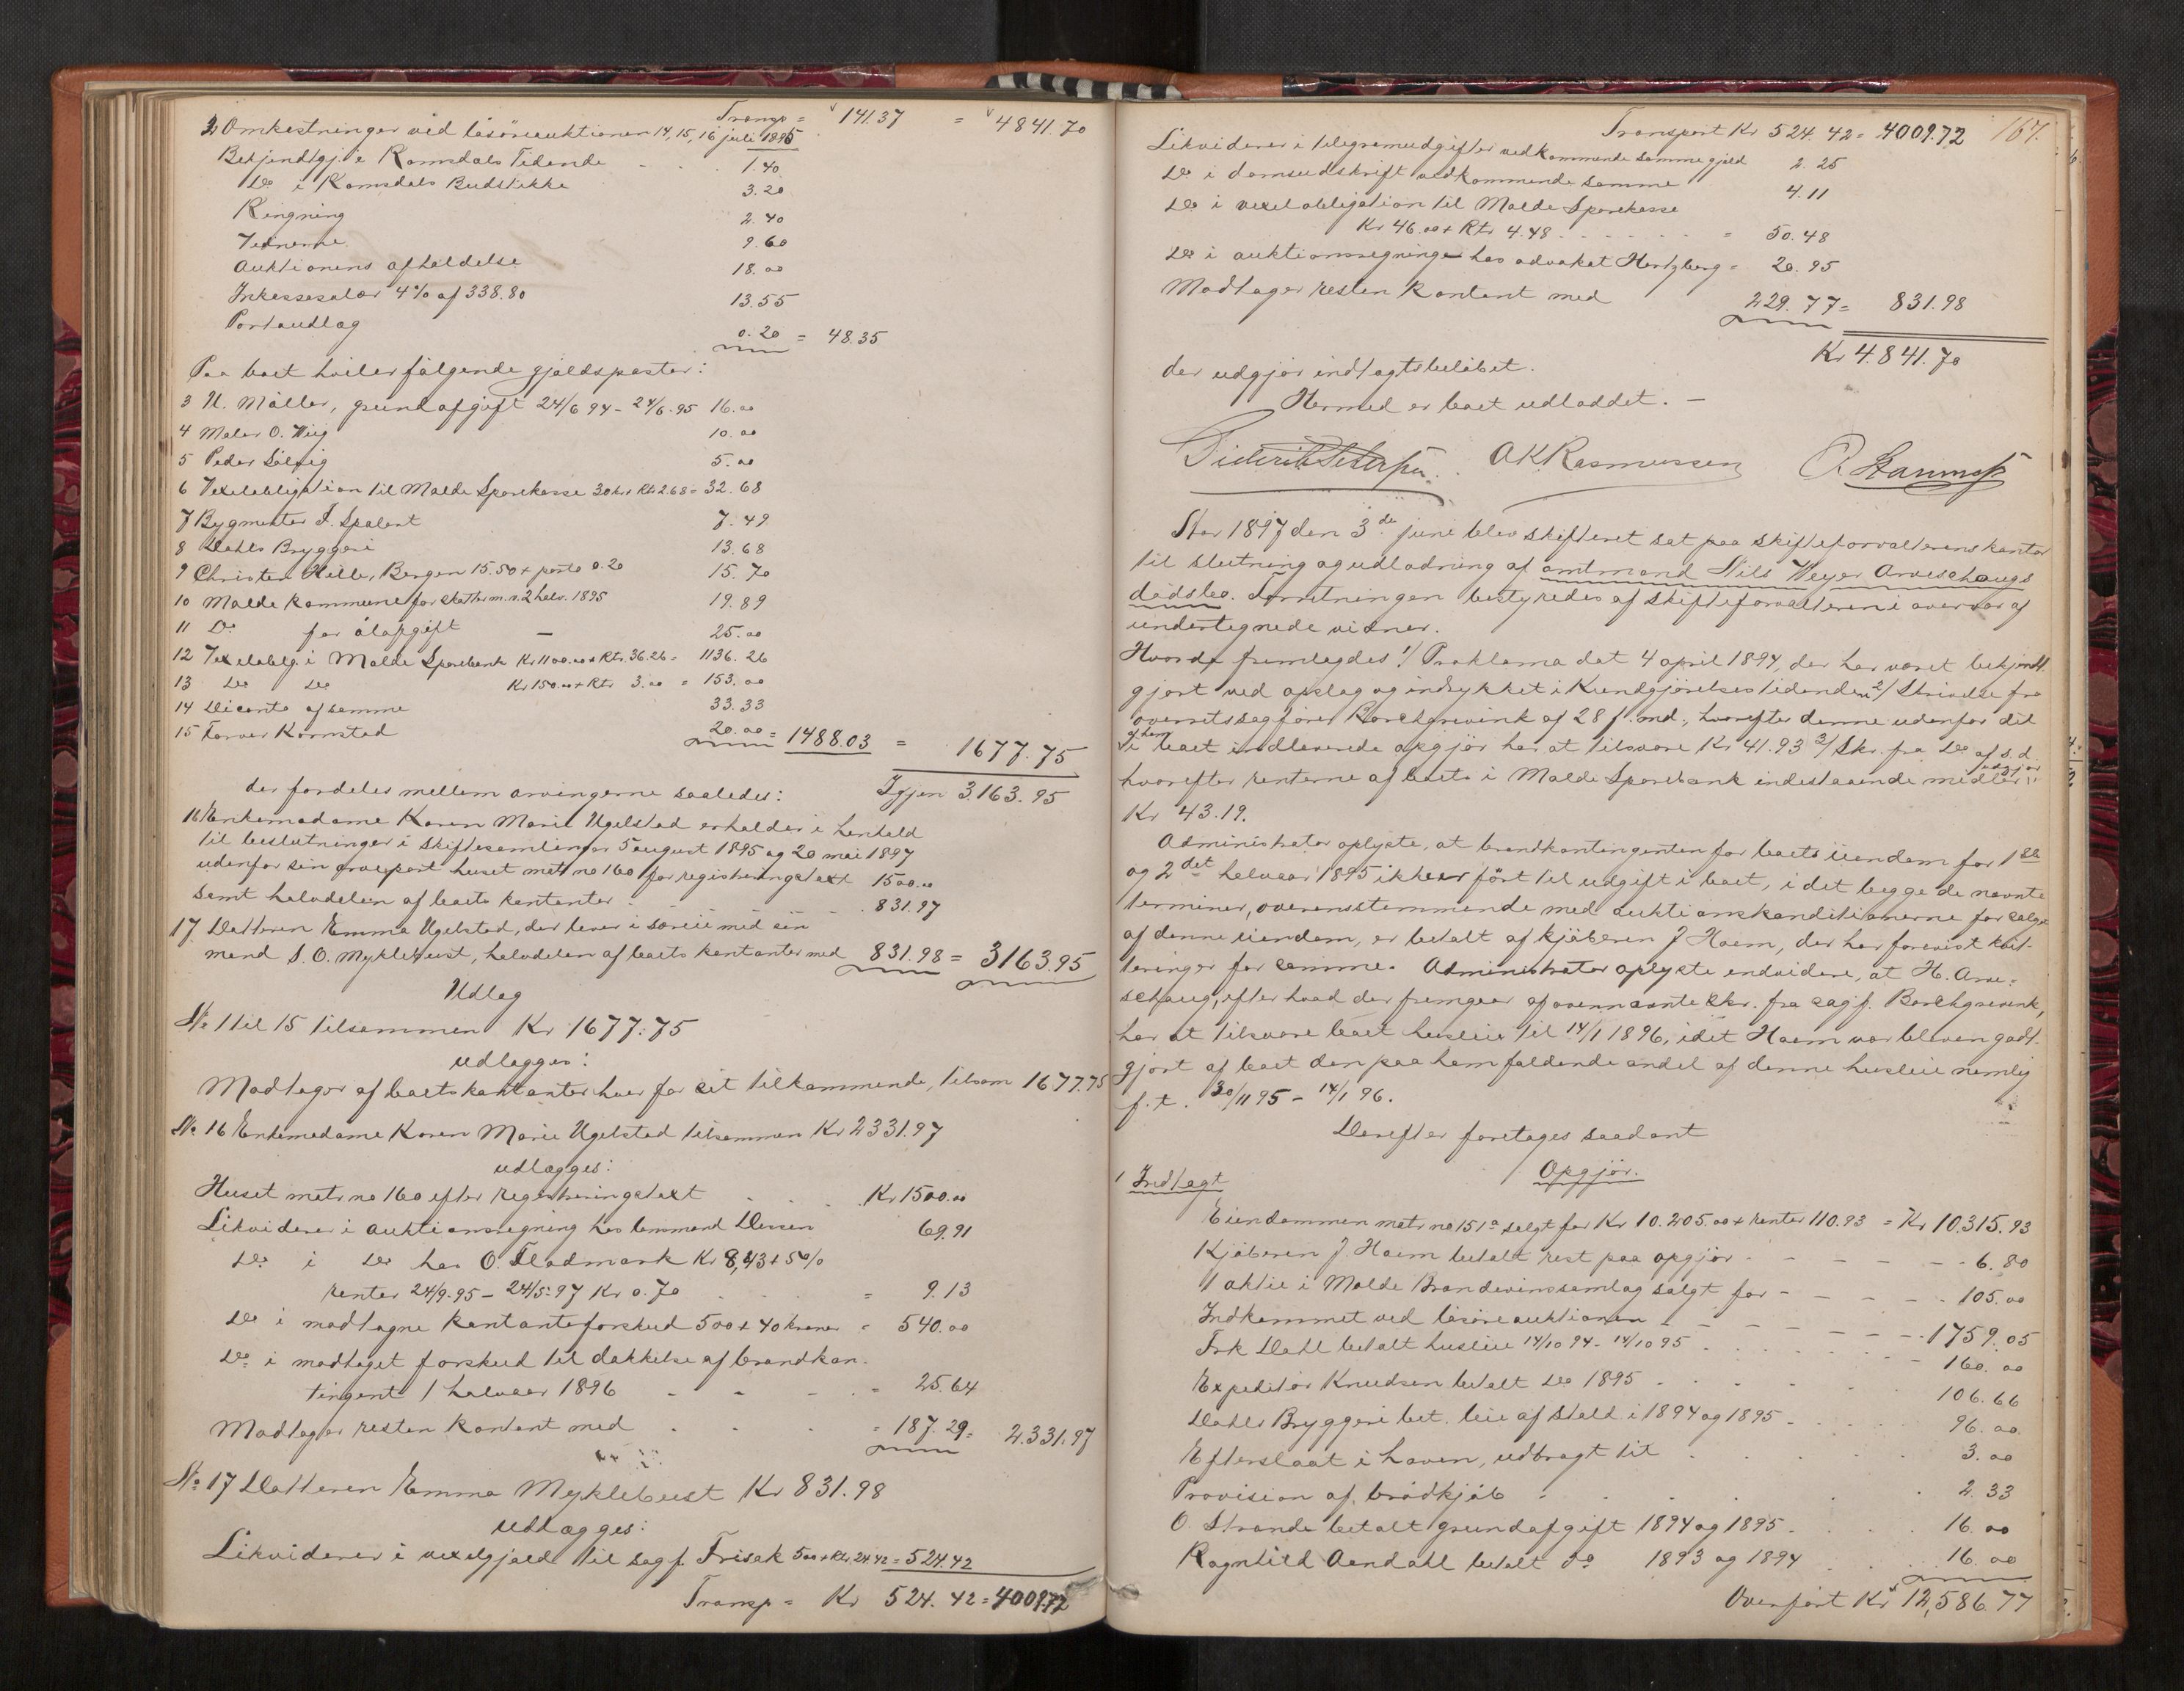 Transp = 141.37 = 4841.70
2 Omkostninger ved løsøreauktionen 14, 15, 16 juli 1895
Bekjendtgj. i Romsdals Tidende 1.40
Do i Romsdals Budstikke 3.20
Ringning 2.40
Vidnerne 9.60
Auktionens afholdelse 18.00
Inkassosalær 4% af 338.80 13.55
Portoudlæg 0.20 = 48.35
Paa boet hviler følgende gjældsposter:
3 N. Møller, grundafgift 24/6 94 - 24/6.95 16.00
4 Maler O. Wiig 10.00
5 Peder Sølsig 5.00
6 Vexelobligation til Molde Sparekasse 30 kr + Rtr 2.68 = 32.68
7 Bygmester I. Spalent 7.49
8 Dahls Bryggeri 13.68
9 Christen Hille, Bergen 15.50 + porto 0.20 15.70
10 Molde kommune for skatter m.v. 2 halv. 1895 19.89
11 Do for ølafgift — 25.00
12 Vexeloblg. i Molde Sparebank Kr 1100.00 + Rtr. 36.26 = 1136.26
13 Do Do Kr 150.00 + Rtr 3.00 = 153.00
14 Disconto af samme 33.33
15 Farver Kornstad 20.00 = 1488.03 = 1677.75
Igjen 3163.95
der fordeles mellem arvingerne saaledes:
16 Enkemadame Karen Marie Ugelstad erholder i henhold
til beslutninger i skiftesamlinger 5 august 1895 og 20 mai 1897
udenfor sin arvepart huset matr no 160 for registreringstaxt 1500.00
samt halvdelen af boets kontanter 831.97
17 Datteren Emma Ugelstad, der lever i særeie med sin
mand S. O. Myklebust, halvdelen af boets kontanter med 831.98 = 3163.95
Udlæg
No 1 til 15 tilsammen Kr 1677.75
udlægges:
Modtager af boets kontanter hver for sit tilkommende, tilsam 1677.75
No 16 Enkemadame Karen Marie Ugelstad tilsammen Kr 2331.97
udlægges:
Huset matr no 160 efter registreringstaxt Kr 1500.00
Likviderer i auktionsregning hos lensmand Dessen 69.91
Do i Do hos O. Fladmark Kr 8,43 + 5%
renter 24/9.95 - 24/5.97 Kr 0.70 = 9.13
Do i modtagne kontantforskud 500 + 40 kroner = 540.00
Do i modtaget forskud til dækkelse af brandkon-
tingent 1 halvaar 1896 = 25.64
Modtager resten kontant med = 187.29 = 2.331.97
No 17 Datteren Emma Myklebust Kr 831.98
udlægges:
Likviderer i vexelgjæld til sagf. Frisak 500 + Rtr. 24.42 = 524.42
Transp = Kr 524.42 = 4009.72
Transport Kr 524.42 = 4009.72 167.
Likviderer i telegramudgifter vedkommende samme gjæld 2.25
Do i domsudskrift vedkommende samme 4.11
Do i vexelobligation til Molde Sparekasse
Kr 46.00 + Rtr 4.48 = 50.48
Do i auktionsregning hos advokat Hertzberg = 20.95
Modtager resten kontant med 229.77 = 831.98
Kr 4.841.70
der udgjør indlagtsbeløbet.
Hermed er boet udloddet. —
Diderik Petersen. A K Rasmussen
Aar 1897 den 3de juni blev skifteret sat paa skifteforvalterens kontor
til slutning og udlodning af amtmand Nils Weyer Arveschougs
dødsbo. Forretningen bestyredes af skifteforvalteren i overvær af
undertegnede vidner.
Hvorda fremlagdes 1/ Proklama dat 4 april 1894, der har været bekjendt-
gjort ved opslag og indrykket i Kundgjørelsestidenden 2/ Skrivelse fra
overretssagfører Borchgrevink af 28 f. md., hvorefter denne udenfor det
af ham
i boet indleverede opgjør har at tilsvare Kr 41.93 3/ Skr. fra Do af s. d.
hvorefter renterne af boets i Molde Sparebank indestaaende midler udgjør
Kr 43.19.
Administrator oplyste, at brandkontingenten for boets eiendom for 1ste
og 2det halvaar 1895 ikke er ført til udgift i boet, idet begge de nævnte
terminer, overensstemmende med auktionskonditionerne for salget
af denne eiendom, er betalt af kjøberen J Haem, der har forevist kvit-
teringer for samme. Administrator oplyste endvidere, at H. Arve-
schoug, efter hvad der fremgaar af ovennævnte Skr. fra sagf. Borchgrevink,
har at tilsvare boet husleie til 14/1 1896, idet Haem var bleven godt-
gjort af boet den paa ham faldende andel af denne husleie nemlig
f. t. 30/11 95 - 14/1 96.
Derefter foretages saadant
Opgjør.
1 Indtægt
Eiendommen matr no 151a solgt for Kr 10.205.00 + renter 110.93 = Kr 10.315.93
Kjøberen J. Haem betalt rest paa opgjør 6.80
1 aktie i Molde Brændevinssamlag solgt for 105.00
Indkommet ved løsøreauktionen 1759.05
Frk Dahl betalt husleie 14/10 94 - 14/10 95 160.00
Expeditør Knudsen betalt Do 1895 106.66
Dahls Bryggeri bet. leie af stald i 1894 og 1895 96.00
Efterslaat i haven, udbragt til 3.00
Provision af brødkjøb 2.33
O. Strande betalt grundafgift 1894 og 1895 16.00
Ragnhild Aandahl betalt do 1893 og 1894 16.00
Overført Kr 12,586.77